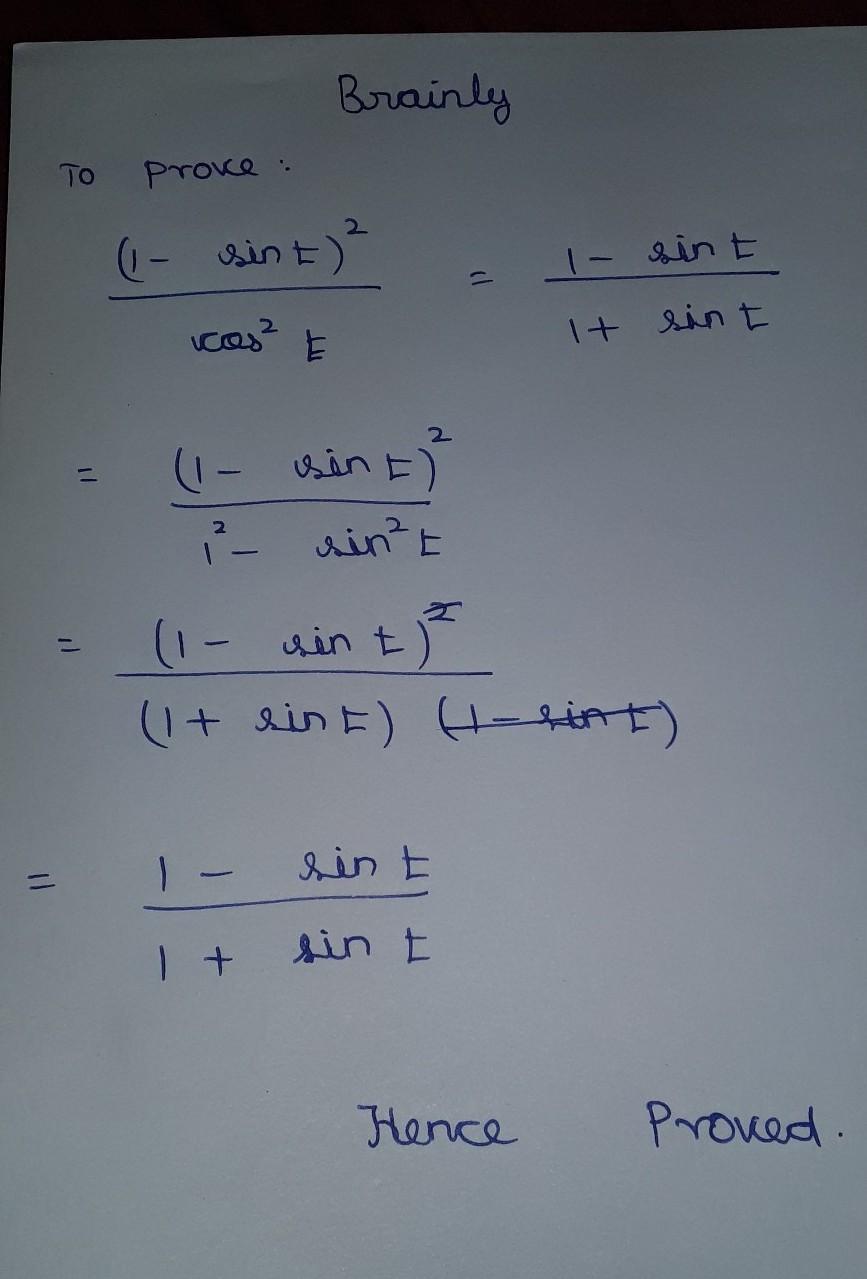 Brainly
To prove :
(1 - sin t)² / cos² t = 1 - sin t / 1 + sin t
= (1 - sin t)² / 1² - sin² t
= (1 - sin t)² / (1 + sin t) (1 - sin t)
= 1 - sin t / 1 + sin t
Hence Proved.